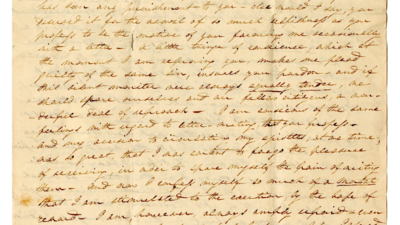 has been any punishment to you – else would I say, you
pursued it for the avowal of so much selfishness as you
profess to be the motive of your favouring me occasionally
with a letter – A little twinge of conscience, which at
the moment I am reproving you, makes me plead
guilty of the same sin, insures your pardon – and if
this silent monitor were always equally tender, we
should spare ourselves and our fellow citizens, a won-
derful deal of reproach – I am conscious of the same
feelings with regard to letter writing that you profess –
and my aversion to circulating my epistles at one time,
was so great, that I was content to forego the pleasure
of receiving, in order to spare myself the pain of writing
them – and now I confess myself so much of a
that I am stimulated to the exertion by the hope of
reward – I am, however, always amply repaid when